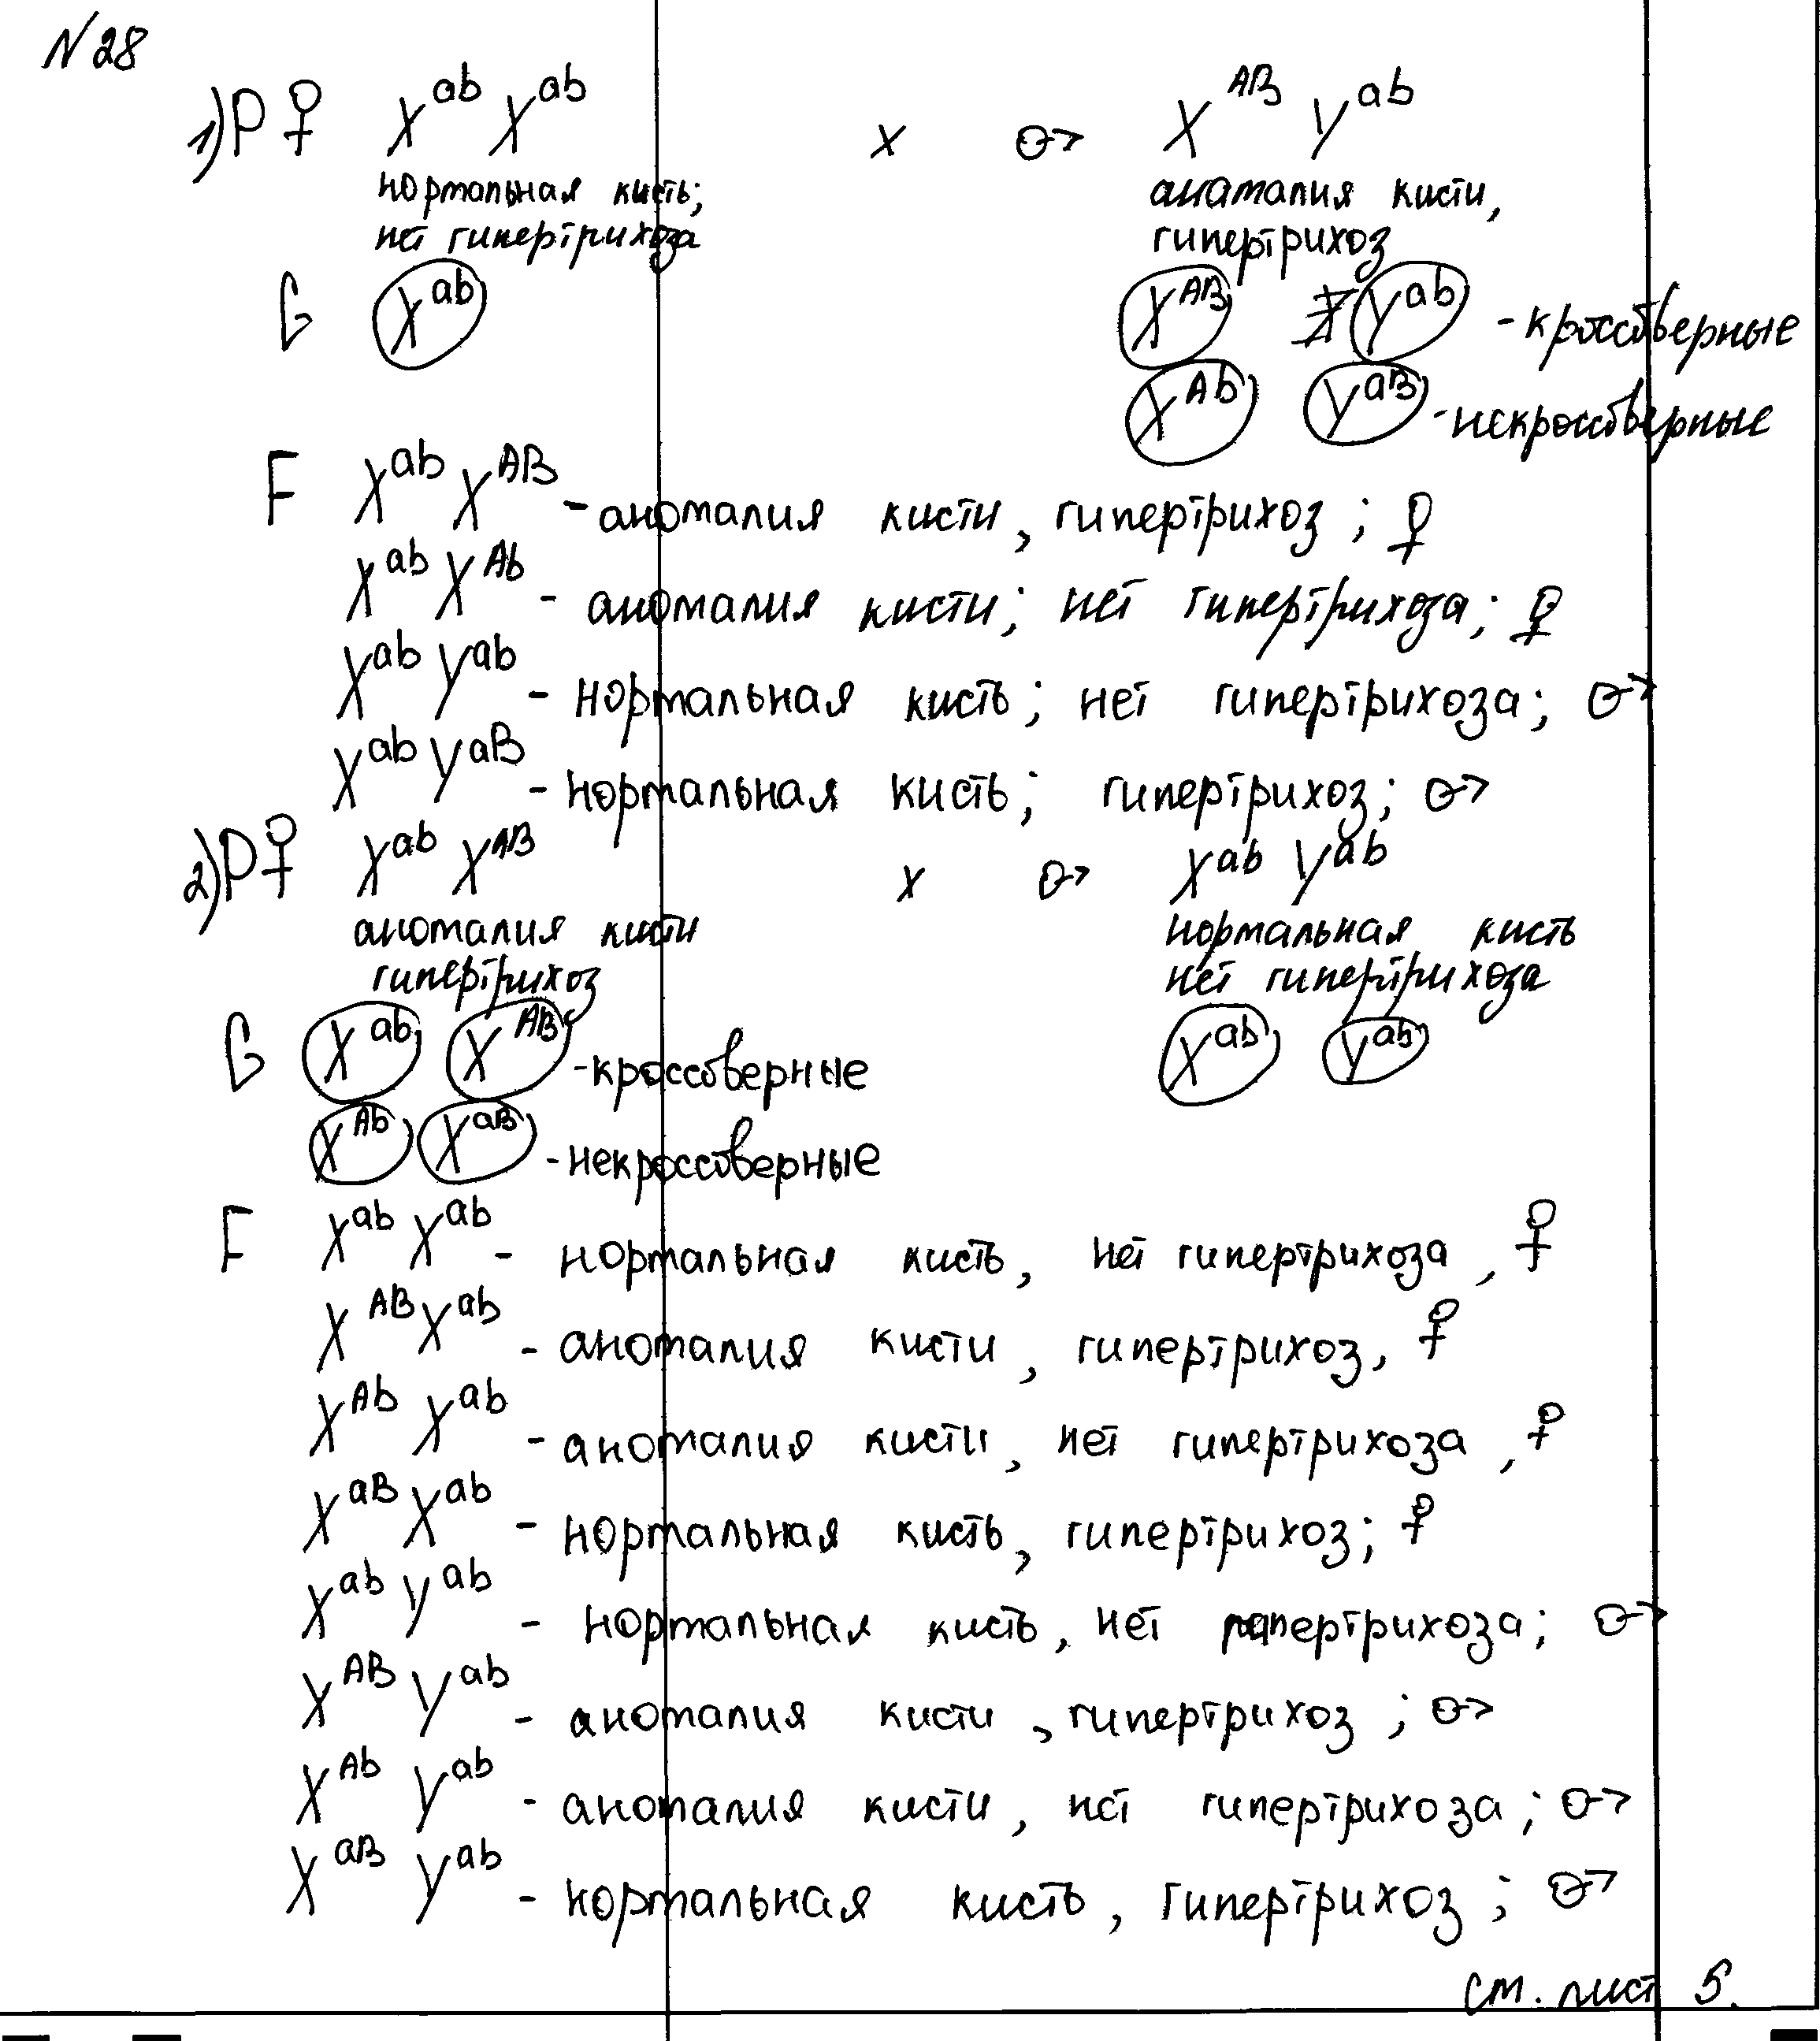 N 28
1) P ♀ X^ab X^ab x ♂ X^AB Y^ab
нормальная кисть; аномалия кисти,
нет гипертрихоза гипертрихоз
G X^ab X^AB Y^ab - кроссоверные
X^Ab Y^aB - некроссоверные
F X^ab X^AB - аномалия кисти, гипертрихоз; ♀
X^ab X^Ab - аномалия кисти; нет гипертрихоза; ♀
X^ab Y^ab - нормальная кисть; нет гипертрихоза; ♂
X^ab Y^aB - нормальная кисть; гипертрихоз; ♂
2) P ♀ X^ab X^AB x ♂ X^ab Y^ab
аномалия кисти нормальная кисть
гипертрихоз нет гипертрихоза
G X^ab X^AB - кроссоверные X^ab Y^ab
X^Ab X^aB - некроссоверные
F X^ab X^ab - нормальная кисть, нет гипертрихоза, ♀
X^AB X^ab - аномалия кисти, гипертрихоз, ♀
X^Ab X^ab - аномалия кисти, нет гипертрихоза, ♀
X^aB X^ab - нормальная кисть, гипертрихоз; ♀
X^ab Y^ab - нормальная кисть, нет гипертрихоза; ♂
X^AB Y^ab - аномалия кисти, гипертрихоз; ♂
X^Ab Y^ab - аномалия кисти, нет гипертрихоза; ♂
X^aB Y^ab - нормальная кисть, гипертрихоз; ♂
см. лист 5.